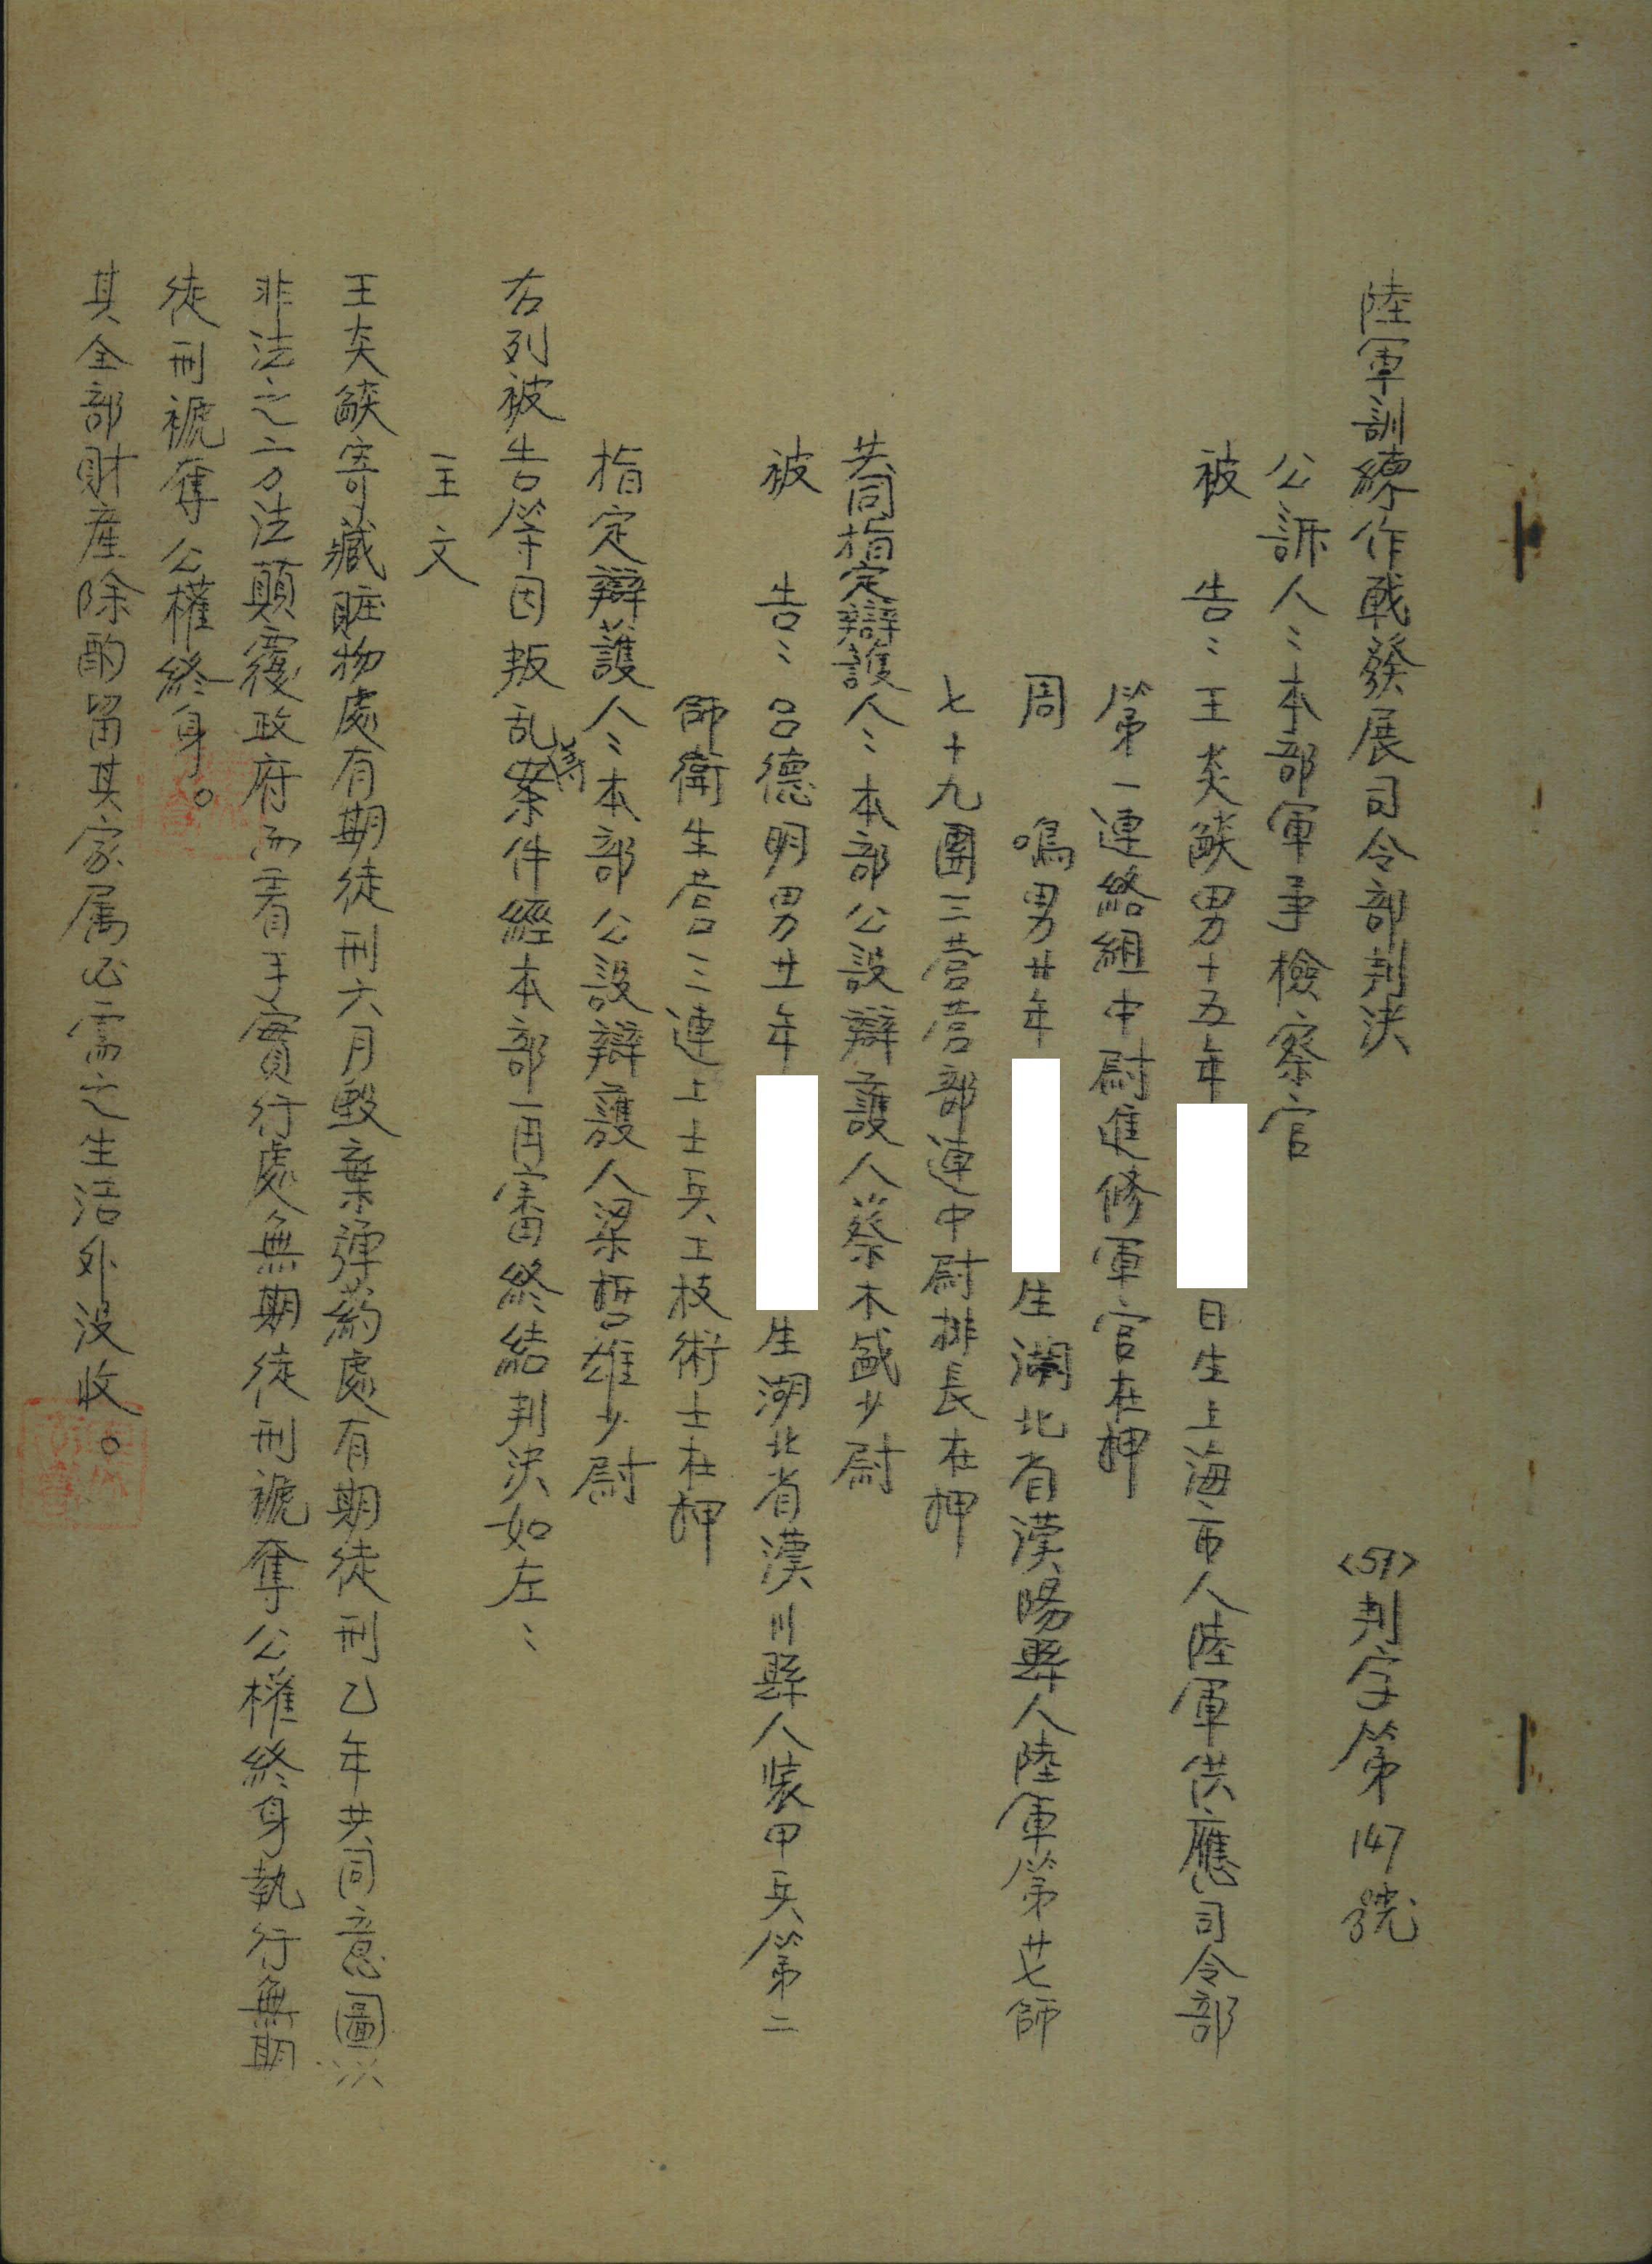 陸軍訓練作戰發展司令部判決
<57>判字第147號
公訴人：本部軍事檢察官
被　告：王炎燄男十五年
日生上海市人陸軍供應司令部
第一連絡組中尉進修軍官在押
周　鳴男廿年
生湖北省漢陽縣人陸軍第廿七師
七十九團三營營部連中尉排長在押
共同指定辯護人：本部公設辯護人蔡木盛少尉
被　告：呂德明男廿年
生湖北省漢川縣人裝甲兵第二
師衛生營三連上士兵工技術士在押
指定辯護人：本部公設辯護人梁哲雄少尉
右列被告等因叛乱等案件經本部再審終結判決如左：
主文
王炎燄寄藏贓物處有期徒刑六月毀棄彈葯處有期徒刑乙年共同意圖以
非法之方法顛覆政府而着手實行處無期徒刑褫奪公權終身執行無期
徒刑褫奪公權終身。
其全部財產除酌留其家屬必需之生活外沒收。